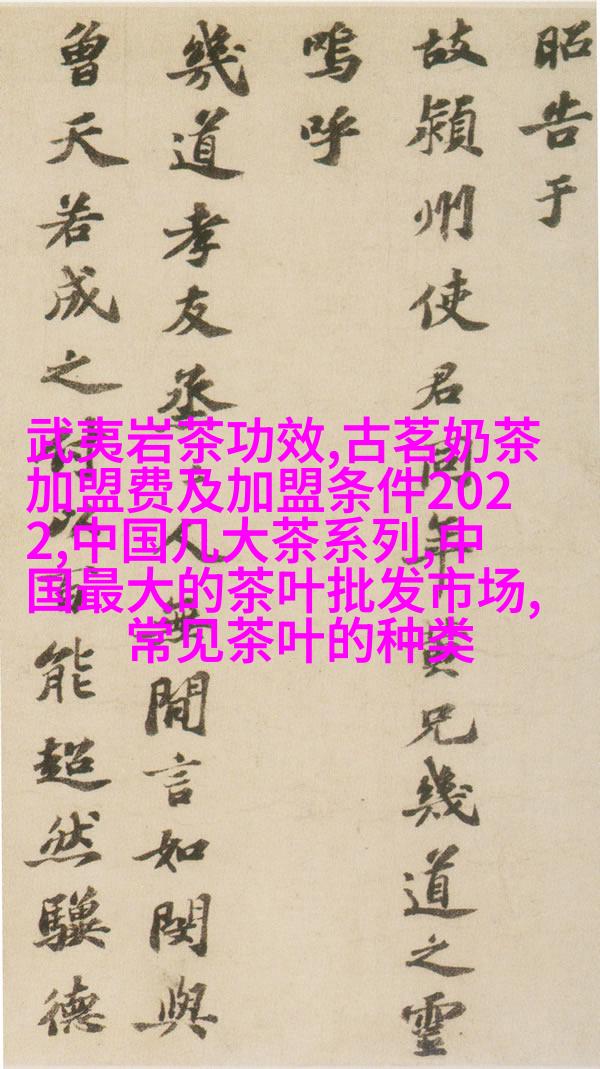 昭告于
故潁州使君同年黄兄幾道之靈
嗚呼
幾道孝友烝人無間言如閔與
曾天若成之付以百能超然驥德
武夷岩茶功效,古茗奶茶
加盟费及加盟条件202
2,中国几大茶系列,中
国最大的茶叶批发市场,
常见茶叶的种类